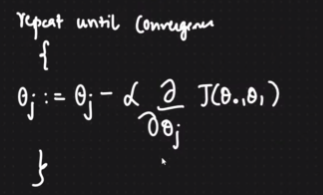 repeat until convergence
{
θj := θj - α ∂/∂θj J(θ₀,θ₁)
}